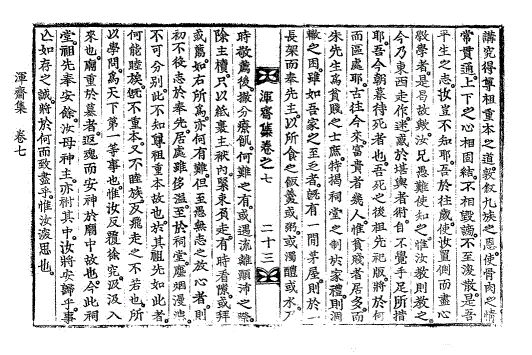 講究得尊祖重本之道敦叙九族之恩使骨肉之情
常貫通上下之心相固結不相毁謫不至渙散是吾
平生之志汝豈不知耶吾於往歲使汝置側而盡心
斅學者是曷故歟汝兄愚難使知之惟汝教則教之
今乃東西走作迷惑於堪輿者術自不覺手足所措
耶吾今朝暮待死者也吾死之後祖先祀版將於何
而區處耶古往今來富貴者幾人惟貧賤者居多而
朱先生爲貧賤之士庶特揭祠堂之制於家禮則凋
檄之困雖如吾家之至乏者旣有一間茅屋則於一
長架而奉先主以所食之飯羹或粥或濁醴或水又
渾齋集卷之七 二十三
時敬薦後撤分療飢何有難之有或遇流離顚沛之際
除主櫝只以紙裹主袱內緊束負走有時看隙或拜
或薦如右所爲亦何有難但至愚無志之放心者則
初不後志於奉先居處雖侈溢至於祠堂塵烟漫漶
不可分別此不知尊祖重本故也於其祖先如此者
何能睦族旣不重本又不睦族及飛走之不若也所
以學問爲天下第一等事也惟汝反覆徐究汲汲入
來也廟重於墓者返魂而安神於廟中故也今此祠
堂祖先奉安餘汝母神主亦祔其中汝將安歸乎事
亡如存之誠將於何而致盡乎惟汝深思也
渾齋集 卷七